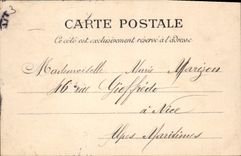 CARTE POSTALE
Ce côté est exclusivement réservé à l'adresse
Mademoiselle Marie
16 rue Gioffrédo
à Nice
Alpes Maritimes